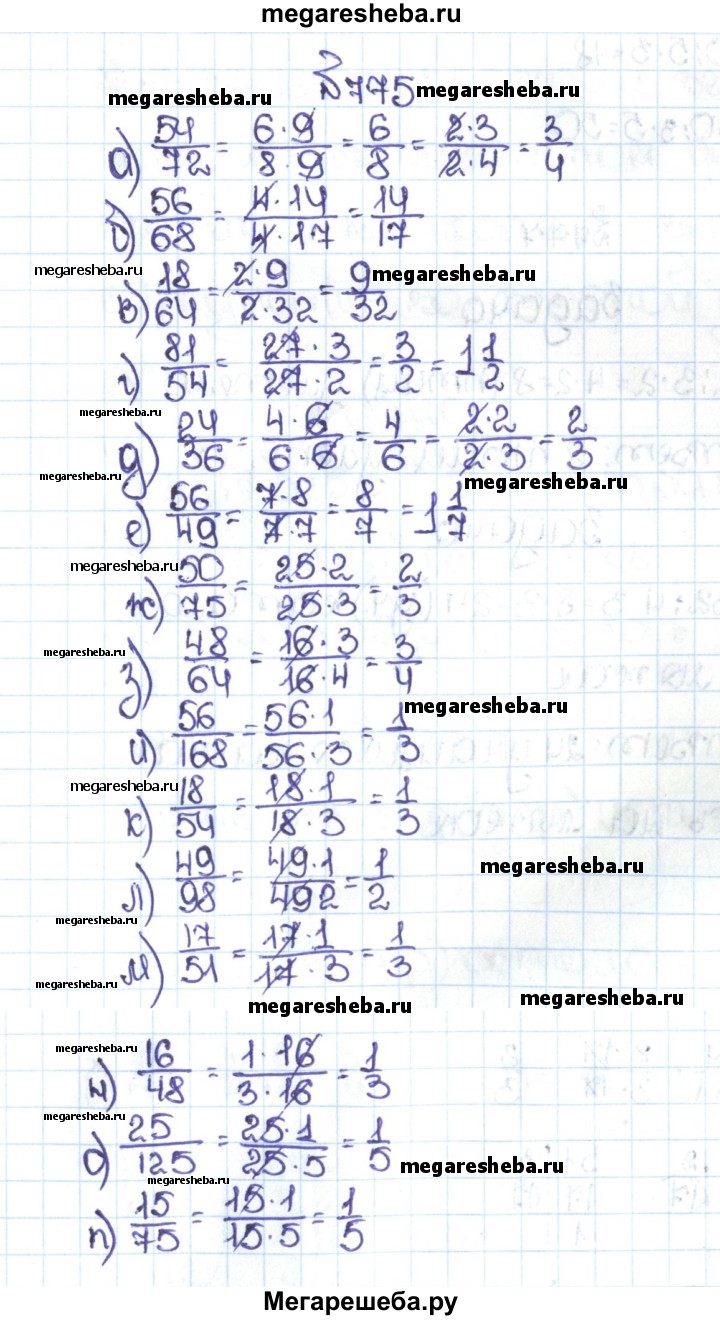 megaresheba.ru
№775
megaresheba.ru megaresheba.ru
а) 54/72 = 6·9/8·9 = 6/8 = 2·3/2·4 = 3/4
б) 56/68 = 4·14/4·17 = 14/17
megaresheba.ru megaresheba.ru
в) 18/64 = 2·9/2·32 = 9/32
г) 81/54 = 27·3/27·2 = 3/2 = 1 1/2
megaresheba.ru
д) 24/36 = 4·6/6·6 = 4/6 = 2·2/2·3 = 2/3
megaresheba.ru megaresheba.ru
е) 56/49 = 7·8/7·7 = 8/7 = 1 1/7
megaresheba.ru
ж) 50/75 = 25·2/25·3 = 2/3
megaresheba.ru
з) 48/64 = 16·3/16·4 = 3/4
megaresheba.ru
и) 56/168 = 56·1/56·3 = 1/3
megaresheba.ru
к) 18/54 = 18·1/18·3 = 1/3
megaresheba.ru
л) 49/98 = 49·1/49 2 = 1/2
megaresheba.ru
м) 17/51 = 17·1/17·3 = 1/3
megaresheba.ru megaresheba.ru
megaresheba.ru
megaresheba.ru
н) 16/48 = 1·16/3·16 = 1/3
megaresheba.ru
о) 25/125 = 25·1/25·5 = 1/5
megaresheba.ru
megaresheba.ru
п) 15/75 = 15·1/15·5 = 1/5
Мегарешеба.ру